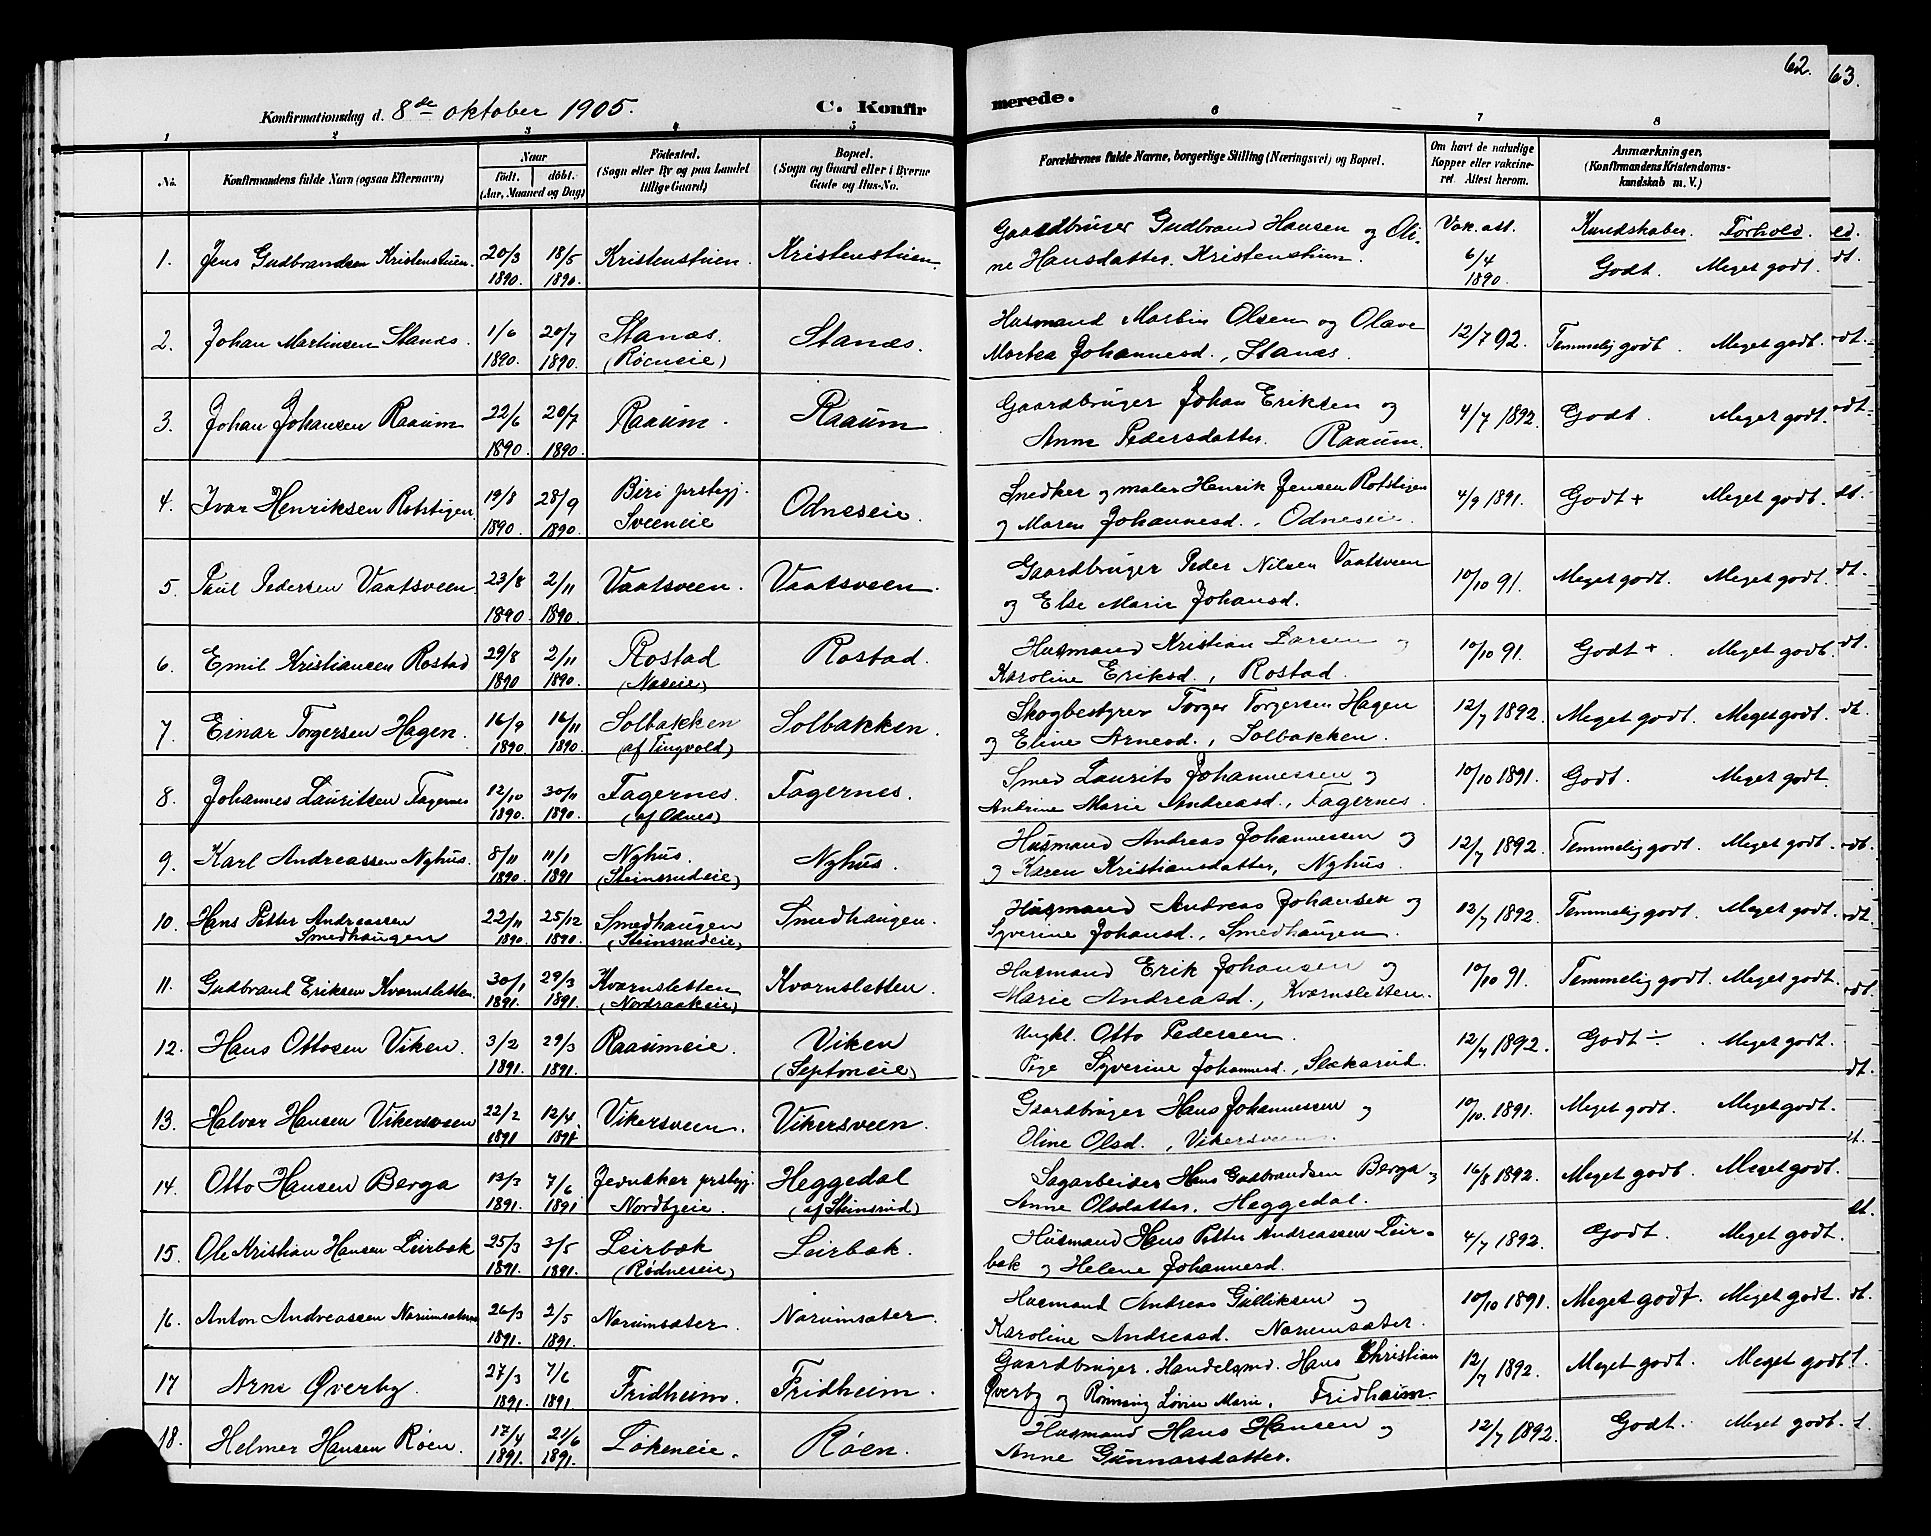 62.
63.
Konfirmationsdag d. 8de oktober 1905.
C. Konfir
merede.
1 2 3 4 5 6 7 8
No. Konfirmandens fulde Navn (ogsaa Efternavn) Naar født. døbt. (Aar, Maaned og Dag) Födested. (Sogn eller By og paa Landet tillige Gaard) Bopæl. (Sogn og Gaard eller i Byerne Gade og Hus-No. Forældrenes fulde Navne, borgerlige Stilling (Næringsvei) og Bopæl. Om havt de naturlige Kopper eller vaksineret Attest herom. Anmærkninger, (Konfirmandens Kristendomskundskab m. V.)
Vak. att. Kundskaber. Forhold.
1. Jens Gudbrandsen Kristenstuen. 20/3 1890. 18/5 1890. Kristenstuen. Kristenstuen. Gaardbruger Gudbrand Hansen og Oli-
ne Hansdatter. Kristenstuen. 6/4 1890. Godt. Meget godt.
2. Johan Martinsen Stanæs. 1/6 1890. 20/7 1890. Stanæs. (Røeneie) Stanæs. Husmand Martin Olsen og Olave
Martea Johannesd., Stanæs. 12/7 92. Temmelig godt. Meget godt.
3. Johan Johansen Raaum 22/6 1890. 20/7 1890. Raaum. Raaum. Gaardbruger Johan Eriksen og
Anne Pedersdatter. Raaum. 4/7 1892. Godt. Meget godt.
4. Ivar Henriksen Rotstigen. 19/8 1890. 28/9 1890. Biri prstegj. Sveeneie Odneseie. Snedker og maler Henrik Jensen Rotstigen
og Maren Johannesd., Odneseie. 4/9 1891. Godt + Meget godt.
5. Paul Pedersen Vaatsveen 23/8 1890 2/11 1890. Vaatsveen. Vaatsveen. Gaardbruger Peder Nilsen Vaatsveen
og Else Marie Johansd. 10/10 91. Meget godt. Meget godt.
6. Emil Kristiansen Rostad 29/8 1890 2/11 1890. Rostad (Næseie) Rostad. Husmand Kristian Larsen og
Karoline Eriksd., Rostad. 10/10 91. Godt +. Meget godt.
7. Einar Torgersen Hagen. 16/9 1890. 16/11 1890. Solbakken (af Tingvold) Solbakken. Skogbestyrer Torger Torgersen Hagen
og Eline Arnesd., Solbakken. 12/7 1892. Meget godt. Meget godt.
8. Johannes Lauritsen Fagernes 12/10 1890. 30/11 1890. Fagernes. (af Odnes) Fagernes. Smed Laurits Johannessen og
Andrine Marie Andreasd., Fagernes. 10/10 1891. Godt. Meget godt
9. Karl Andreassen Nyhus. 8/11 1890. 11/1 1891 Nyhus. (Steinsrudeie) Nyhus. Husmand Andreas Johannessen og
og Karen Kristiansdatter, Nyhus. 12/7 1892. Temmelig godt. Meget godt.
10. Hans Petter Andreassen
Smedhaugen 22/11 1890. 25/12 1890. Smedhaugen (Steinsrudeie) Smedhaugen. Husmand Andreas Johansen og
Syverine Johansd., Smedhaugen. 12/7 1892. Temmelig godt. Meget godt.
11. Gudbrand Eriksen Kvernsletten. 30/1 1891. 29/3 1891. Kvernsletten (Nordraakeie) Kvernsletten. Husmand Erik Johansen og
Marie Andreasd., Kvernsletten. 10/10 91. Temmelig godt. Meget godt.
12. Hans Ottosen Viken. 3/2 1891. 29/3 1891. Raaumeie. Viken (Septoneie) Ungkl. Otto Pedersen.
Pige Syverine Johannesd., Slækarud. 12/7 1892. Godt ÷. Meget godt.
13. Halvor Hansen Vikersveen 22/2 1891 12/4 1891. Vikersveen. Vikersveen. Gaardbruger Hans Johannessen og
Oline Olsd., Vikersveen. 10/10. 1891. Meget godt. Meget godt.
14. Otto Hansen Berga 13/3 1891. 7/6 1891 Jevnaker prstegj. Nordbyeie. Heggedal (af Steinsrud) Sagarbeider Hans Gudbrandsen Berga og
Anne Olsdatter, Heggedal. 16/8 1892. Meget godt. Meget godt.
15. Ole Kristian Hansen Leirbæk 25/3 1891. 3/5 1891. Leirbæk (Rødneseie) Leirbæk. Husmand Hans Petter Andreassen Leir-
bæk og Helene Johannesd. 4/7 1892. Godt. Meget godt.
16. Anton Andreassen Narumsæter 26/3 1891. 2/5 1891. Narumsæter. Narumsæter. Husmand Andreas Gulliksen og
Karoline Andreasd. Narumsæter. 10/10 1891. Meget godt. Meget godt.
17 Arne Øverby. 27/3 1891. 7/6 1891. Fridheim. Fridheim. Gaardbruger. Handelsmd. Hans Christian
Øverby og Rønnaug Lovise Marie, Fridheim. 12/7 1892. Meget godt. Meget godt
18. Helmer Hansen Røen. 17/4 1891. 21/6 1891. Løkeneie. Røen. Husmand Hans Hansen og
Anne Gunnarsdatter. 12/7 1892. Godt. Meget godt.